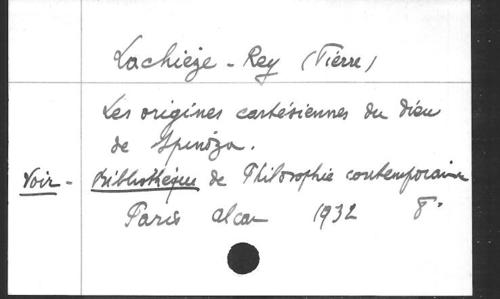 Lachièze-Rey (Pierre)
Les origines cartésiennes du dieu
de Spinoza.
Voir - Bibliothèque de Philosophie contemporaine
Paris Alcan 1932 8°